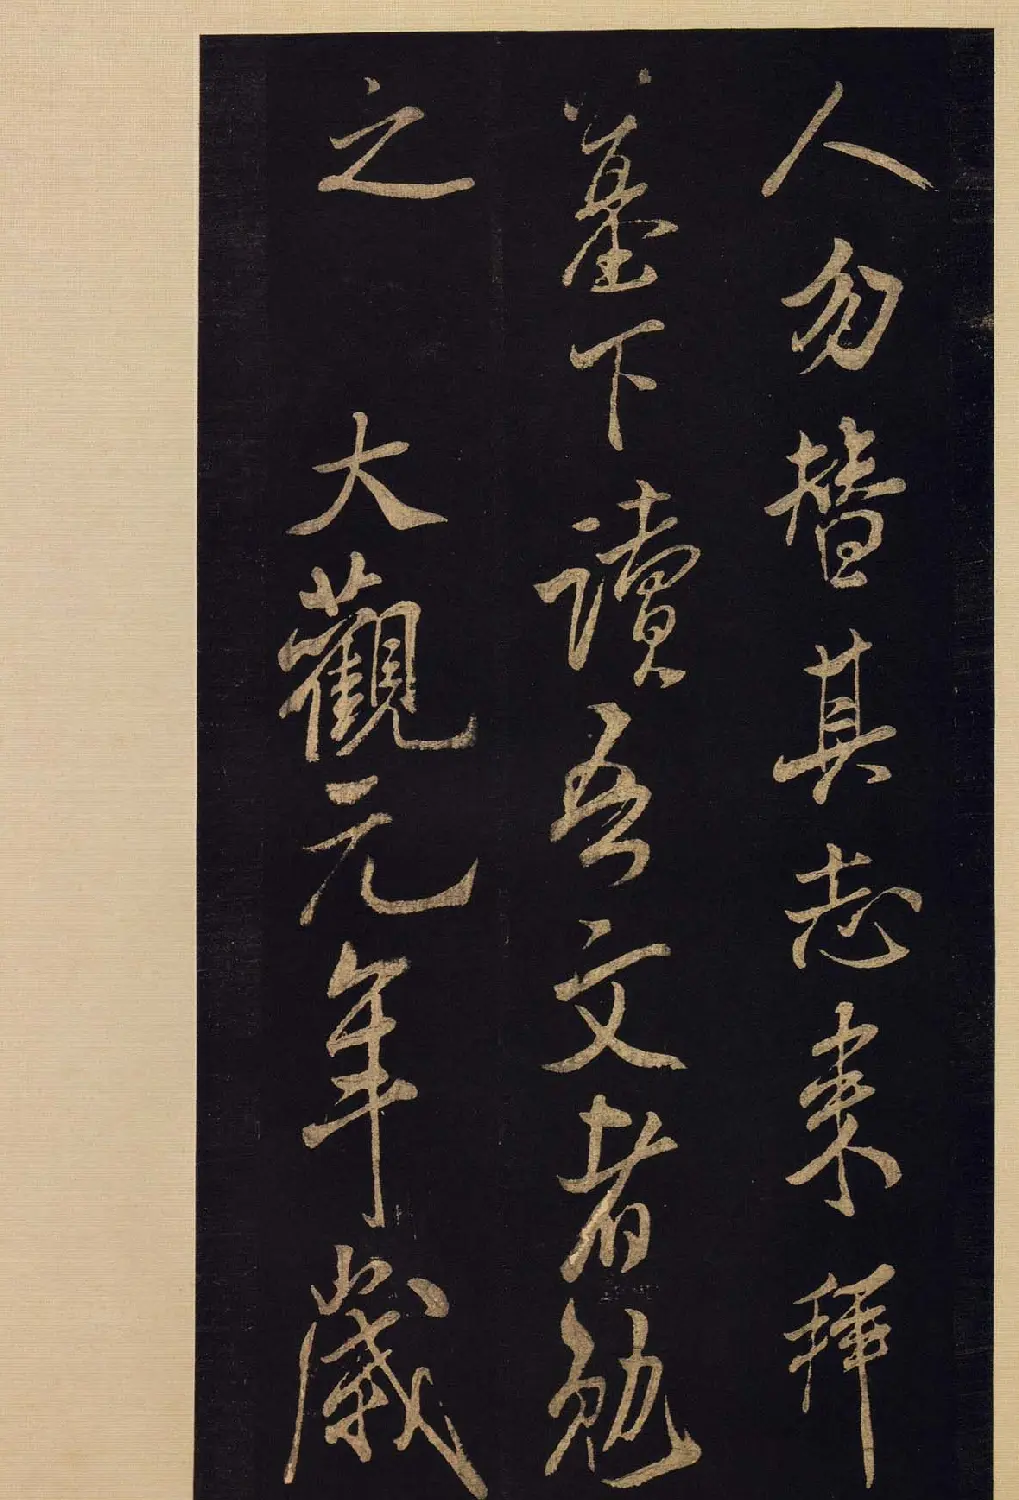 人勿替其志来拜
墓下读吾文者勉
之 大觀元年歲